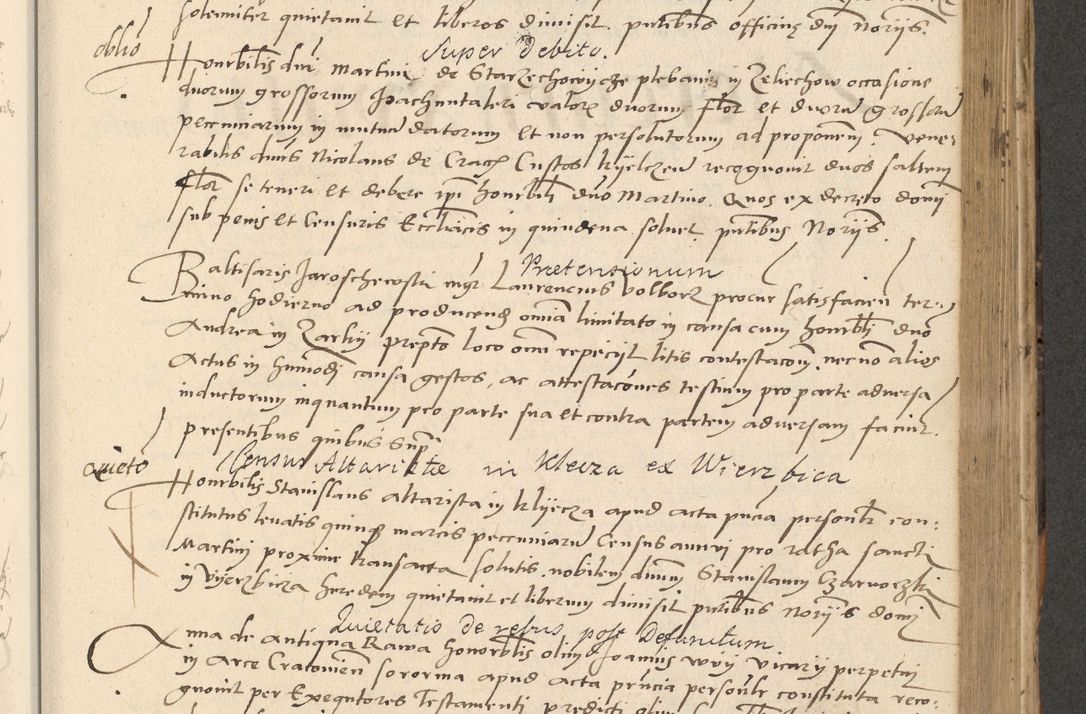 solemniter quietavit et liberos dimisit pntibus officii dni Noriis.
oblio
Super Debito.
Honorbilis dni Martini de Starzechowycze plebani in Zeliechow occasione
duorum grossorum Joachimtaleri valore duorum flor et duorum grossorum
pecuniarum in mutuum datorum et non persolutorum ad proponem vene-
rabilis dnus Nicolaus de Crac Custos Kyelczen recognovit duos saltem
flor se teneri et debere ipi honorbili duo Martino. Quos ex decreto domini
sub penis et censuris Eccliacis in quindena solvet pntibus Noriis.
Pretensionum
Baltisaris Jaroschewski mgr Laurencius Volborz procur satisfacien ter-
mino hodierno ad producend omnia limitato in causa cum honorbli duo
Andrea in Zarky prepto loco omni repeciit litis contestacom necno alios
Actus in huiusmodi causa gestos, ac attestaciones testium pro parte adversa
inductorum inquantum pro parte sua et contra partem adversam faciunt.
presentibus quibus supra
quieto
Census Altaristae in Klecza ex Wierzbica
Honorbilis Stanislaus altarista in Klyecza apud acta pncia personlr con-
stitutus levatis quinque marcis pecuniarum census annui pro ratha sancti
Martini proxime transacta solutis nobilem dnum Stanislaum Czarnoczki
in Vyerzbicza heredem quietavit et liberum dimisit pntibus Noriis domi
Quietatio de rebus post Defunctum
Anna de antiqua Rawa honorbilis olim Joannis Wyy Vicarii perpetui
in Arce Cracovien sororina apud acta pncia personlr constituta reco-
gnovit per Exequtores Testamenti predicti olim